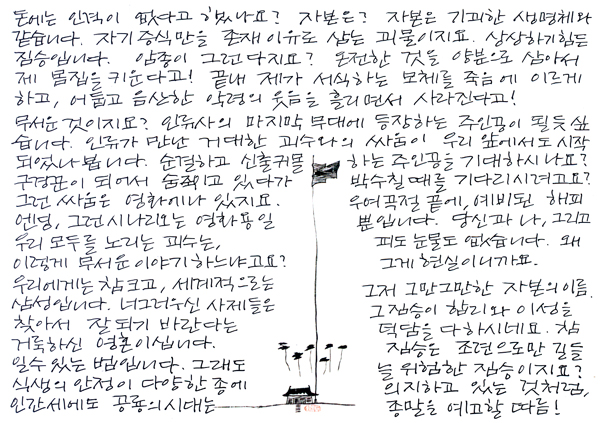 돈에는 인격이 없다고 하셨나요? 자본은? 자본은 기괴한 생명체와
같습니다. 자기증식만을 존재이유로 삼는 괴물이지요. 상상하기힘든
짐승입니다. 암종이 그런다지요? 온전한 것을 양분으로 삼아서
제 몸집을 키운다고! 끝내 제가 서식하는 모체를 죽음에 이르게
하고, 어둡고 음산한 악령의 웃음을 흘리면서 사라진다고!
무서운 것이지요? 인류사의 마지막 부대에 등장하는 주인공이 될듯 싶
습니다. 인류가 만난 거대한 괴수와의 싸움이 우리 앞에서도 시작
되었나 봅니다. 순결하고 신출귀몰 하는 주인공을 기대하시나요?
구경꾼이 되어서 숨죽이고 있다가 박수칠 때를 기다리시려고요?
그런 싸움은 영화에나 있지요. 우여곡절 끝에, 예비된 해피
엔딩, 그런시나리오는 영화용일 뿐입니다. 당신과 나, 그리고
우리 모두를 노리는 괴수는, 피도 눈물도 없습니다. 왜
이렇게 무서운이야기 하느냐고요? 그게 현실이니까요.
우리에게는 참크고, 세계적으로는 그저 그만그만한 자본의이름.
삼성입니다. 너그러우신 사제들은 그짐승이 합리와 이성을
찾아서 잘 되기 바란다는 덕담을 다하시네요. 참
거룩하신 영혼이십니다. 짐승은 조련으로만 길들
일수있는 법입니다. 그래도 늘 위험한 짐승이지요?
식생의 안정이 다양한 종에 의지하고 있는 것처럼,
인간세에도 공룡의시대는 종말을 예고할 따름!